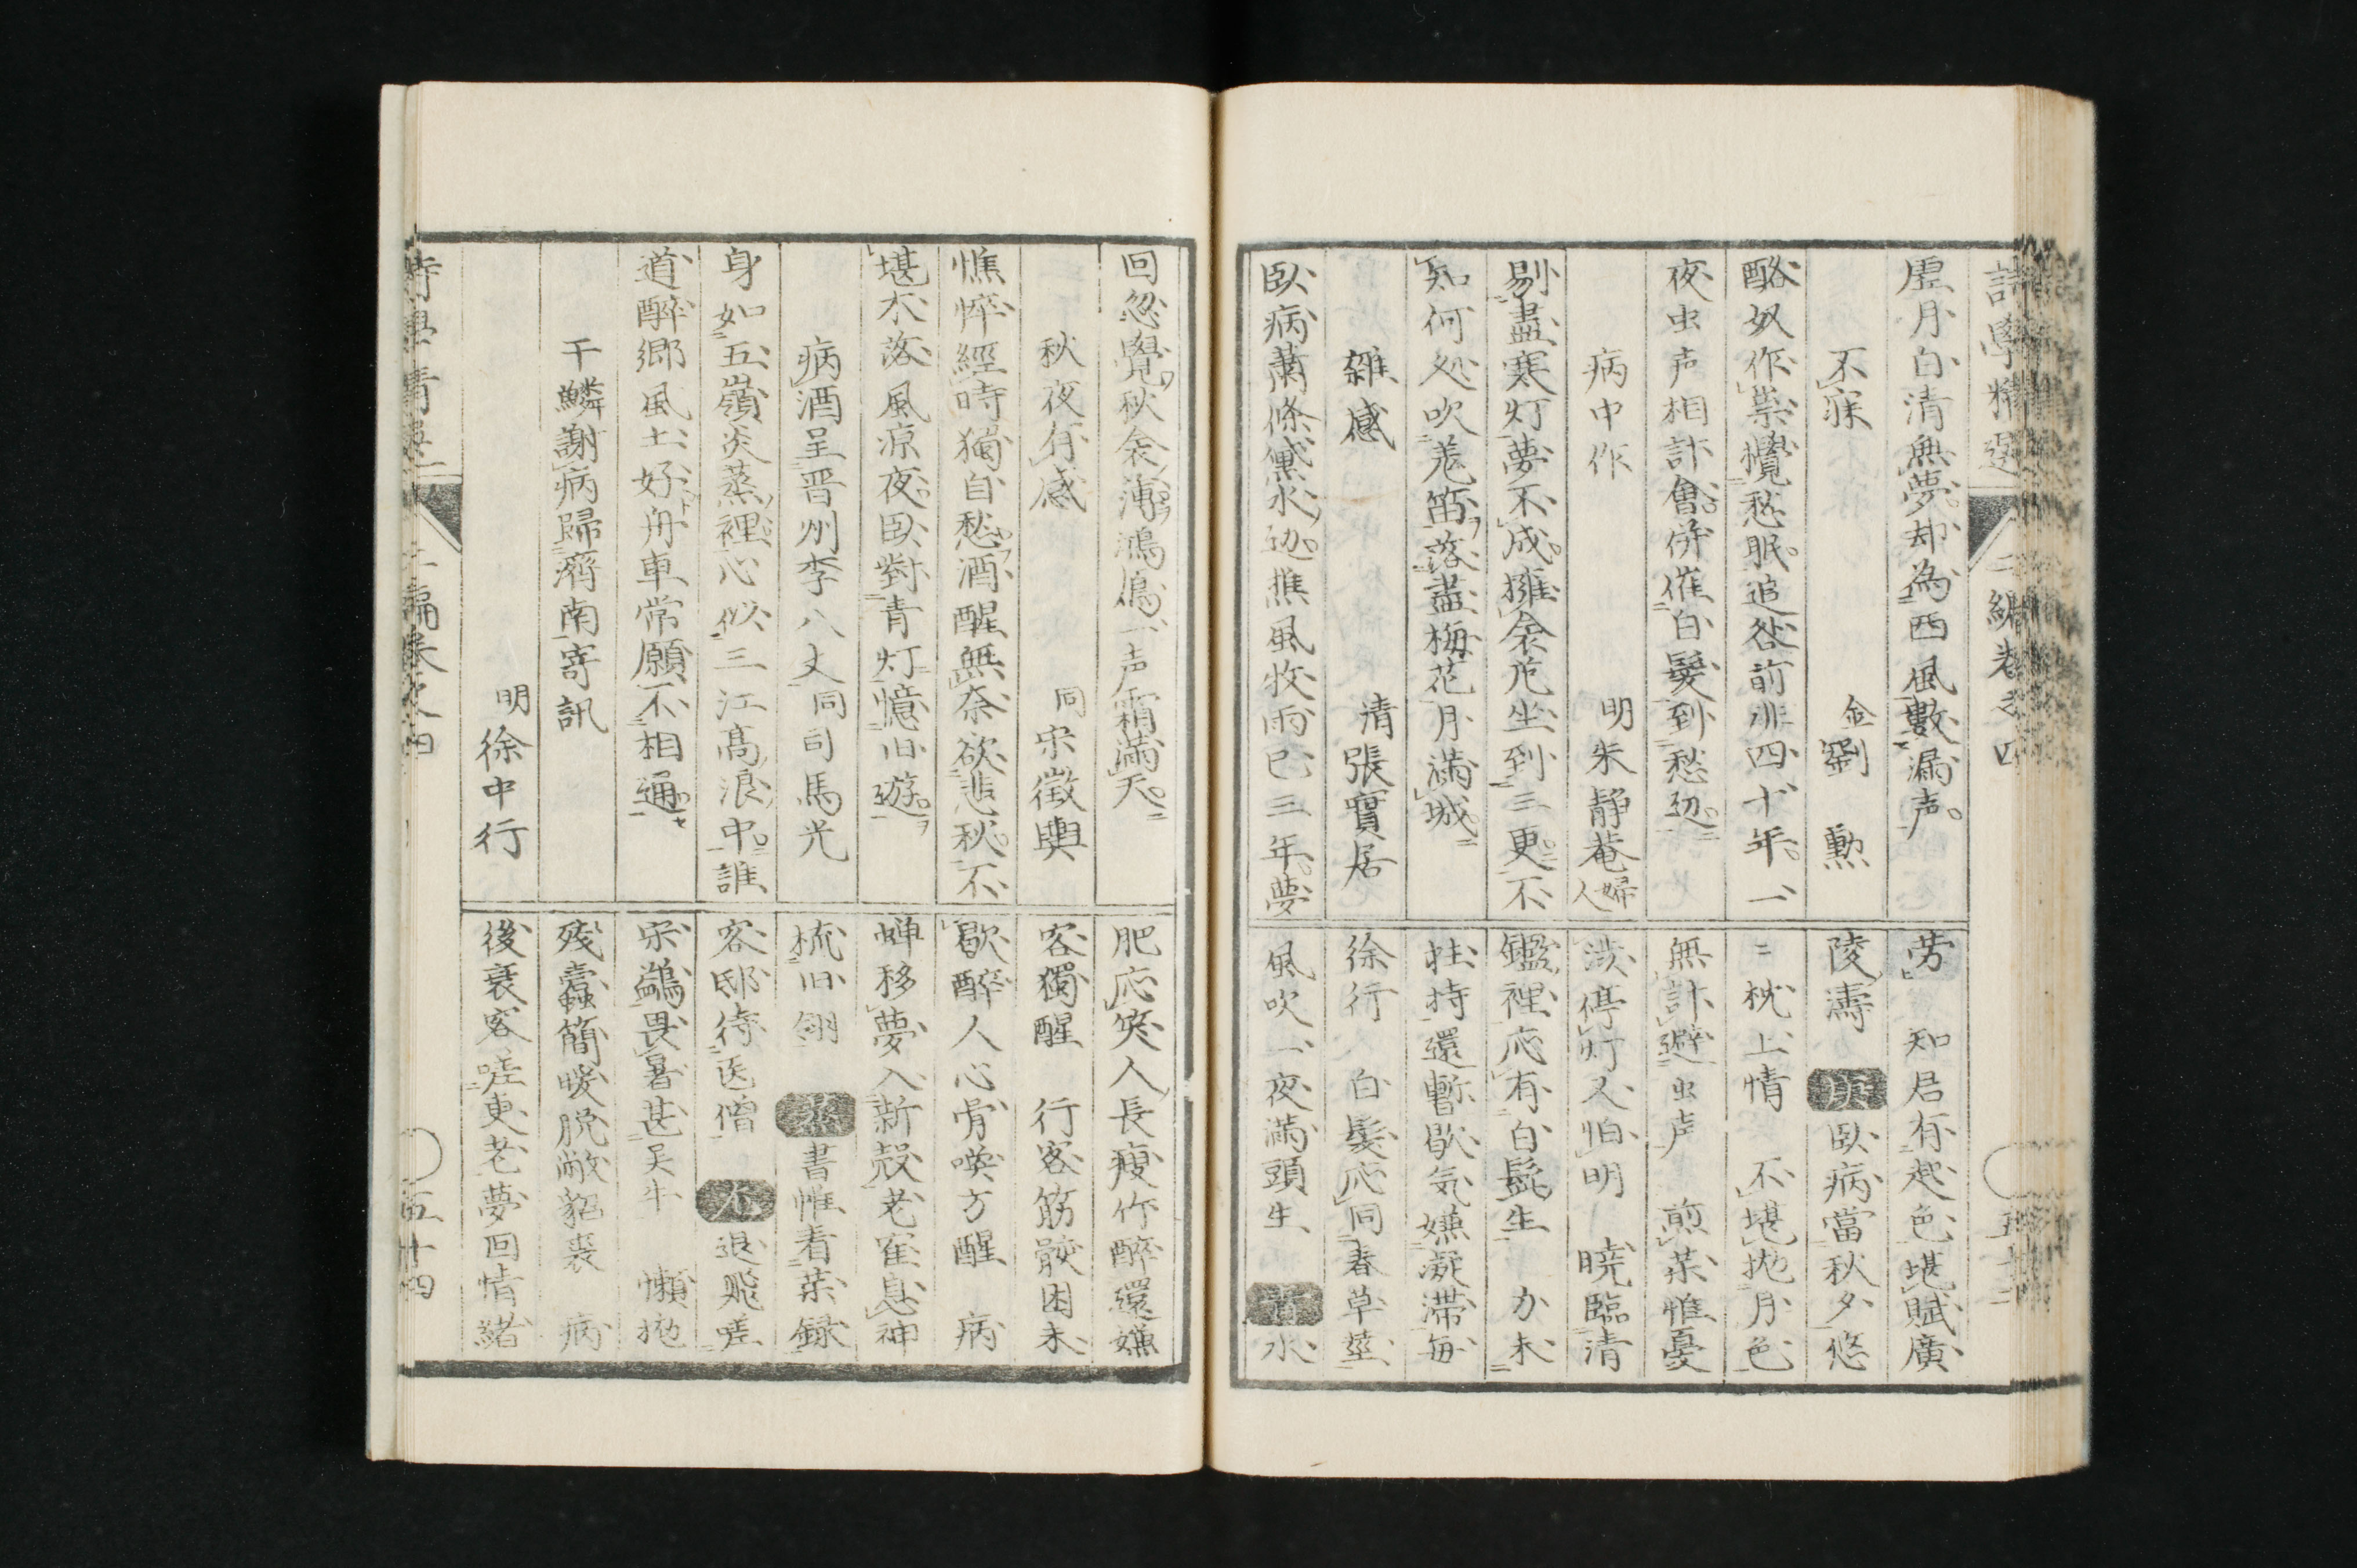 詩學精選 二編卷之四 五十三
虗月白清無夢却為西風數漏声
不寐 金劉勲
酪奴作祟攪愁眠追咎前非四十年一
夜虫声相訃會併催白髮到愁辺
病中作 明朱静菴婦人
剔盡寒灯夢不成擁衾危坐到三更不
知何処吹羌笛落盡梅花月滿城
雑感 清張實居
臥病蕭條傍水辺樵風牧雨已三年夢
労 知君有起色堪賦廣
陵濤 臥病當秋夕悠
〻枕上情 不堪抛月色
無計避虫声 煎薬惟憂
涉停灯又怕明 暁臨清
鑑裡応有白髭生 力未
拄持還暫歇気嫌凝滞毎
徐行 白髪応同春草莖
風吹一夜滿頭生 水
回忽覺秋衾薄鴻鴈一声霜滿天
秋夜有感 同宋徴輿
憔悴經時獨自愁酒醒無奈欲悲秋不
堪木落風凉夜臥對青灯憶旧遊
病酒呈晋州李八丈 同司馬光
身如五嶺炎蒸裡心似三江髙浪中誰
道醉郷風土好舟車常願不相通
于鱗謝病歸濟南寄訊
明徐中行
肥応笑人長瘦竹醉還嫌
客獨醒 行客筋骸困未
歇醉人心骨喚方醒 病
蝉移夢入新殻老隺息神
梳旧翎 書帷看薬録
客邸待医僧 退飛嗟
宋鷁畏暑甚吴牛 懶抛
殘蠧簡暖脱敝貂裘 病
後衰客嗟更老夢回情緒
詩學精選 二編卷之四 五十四